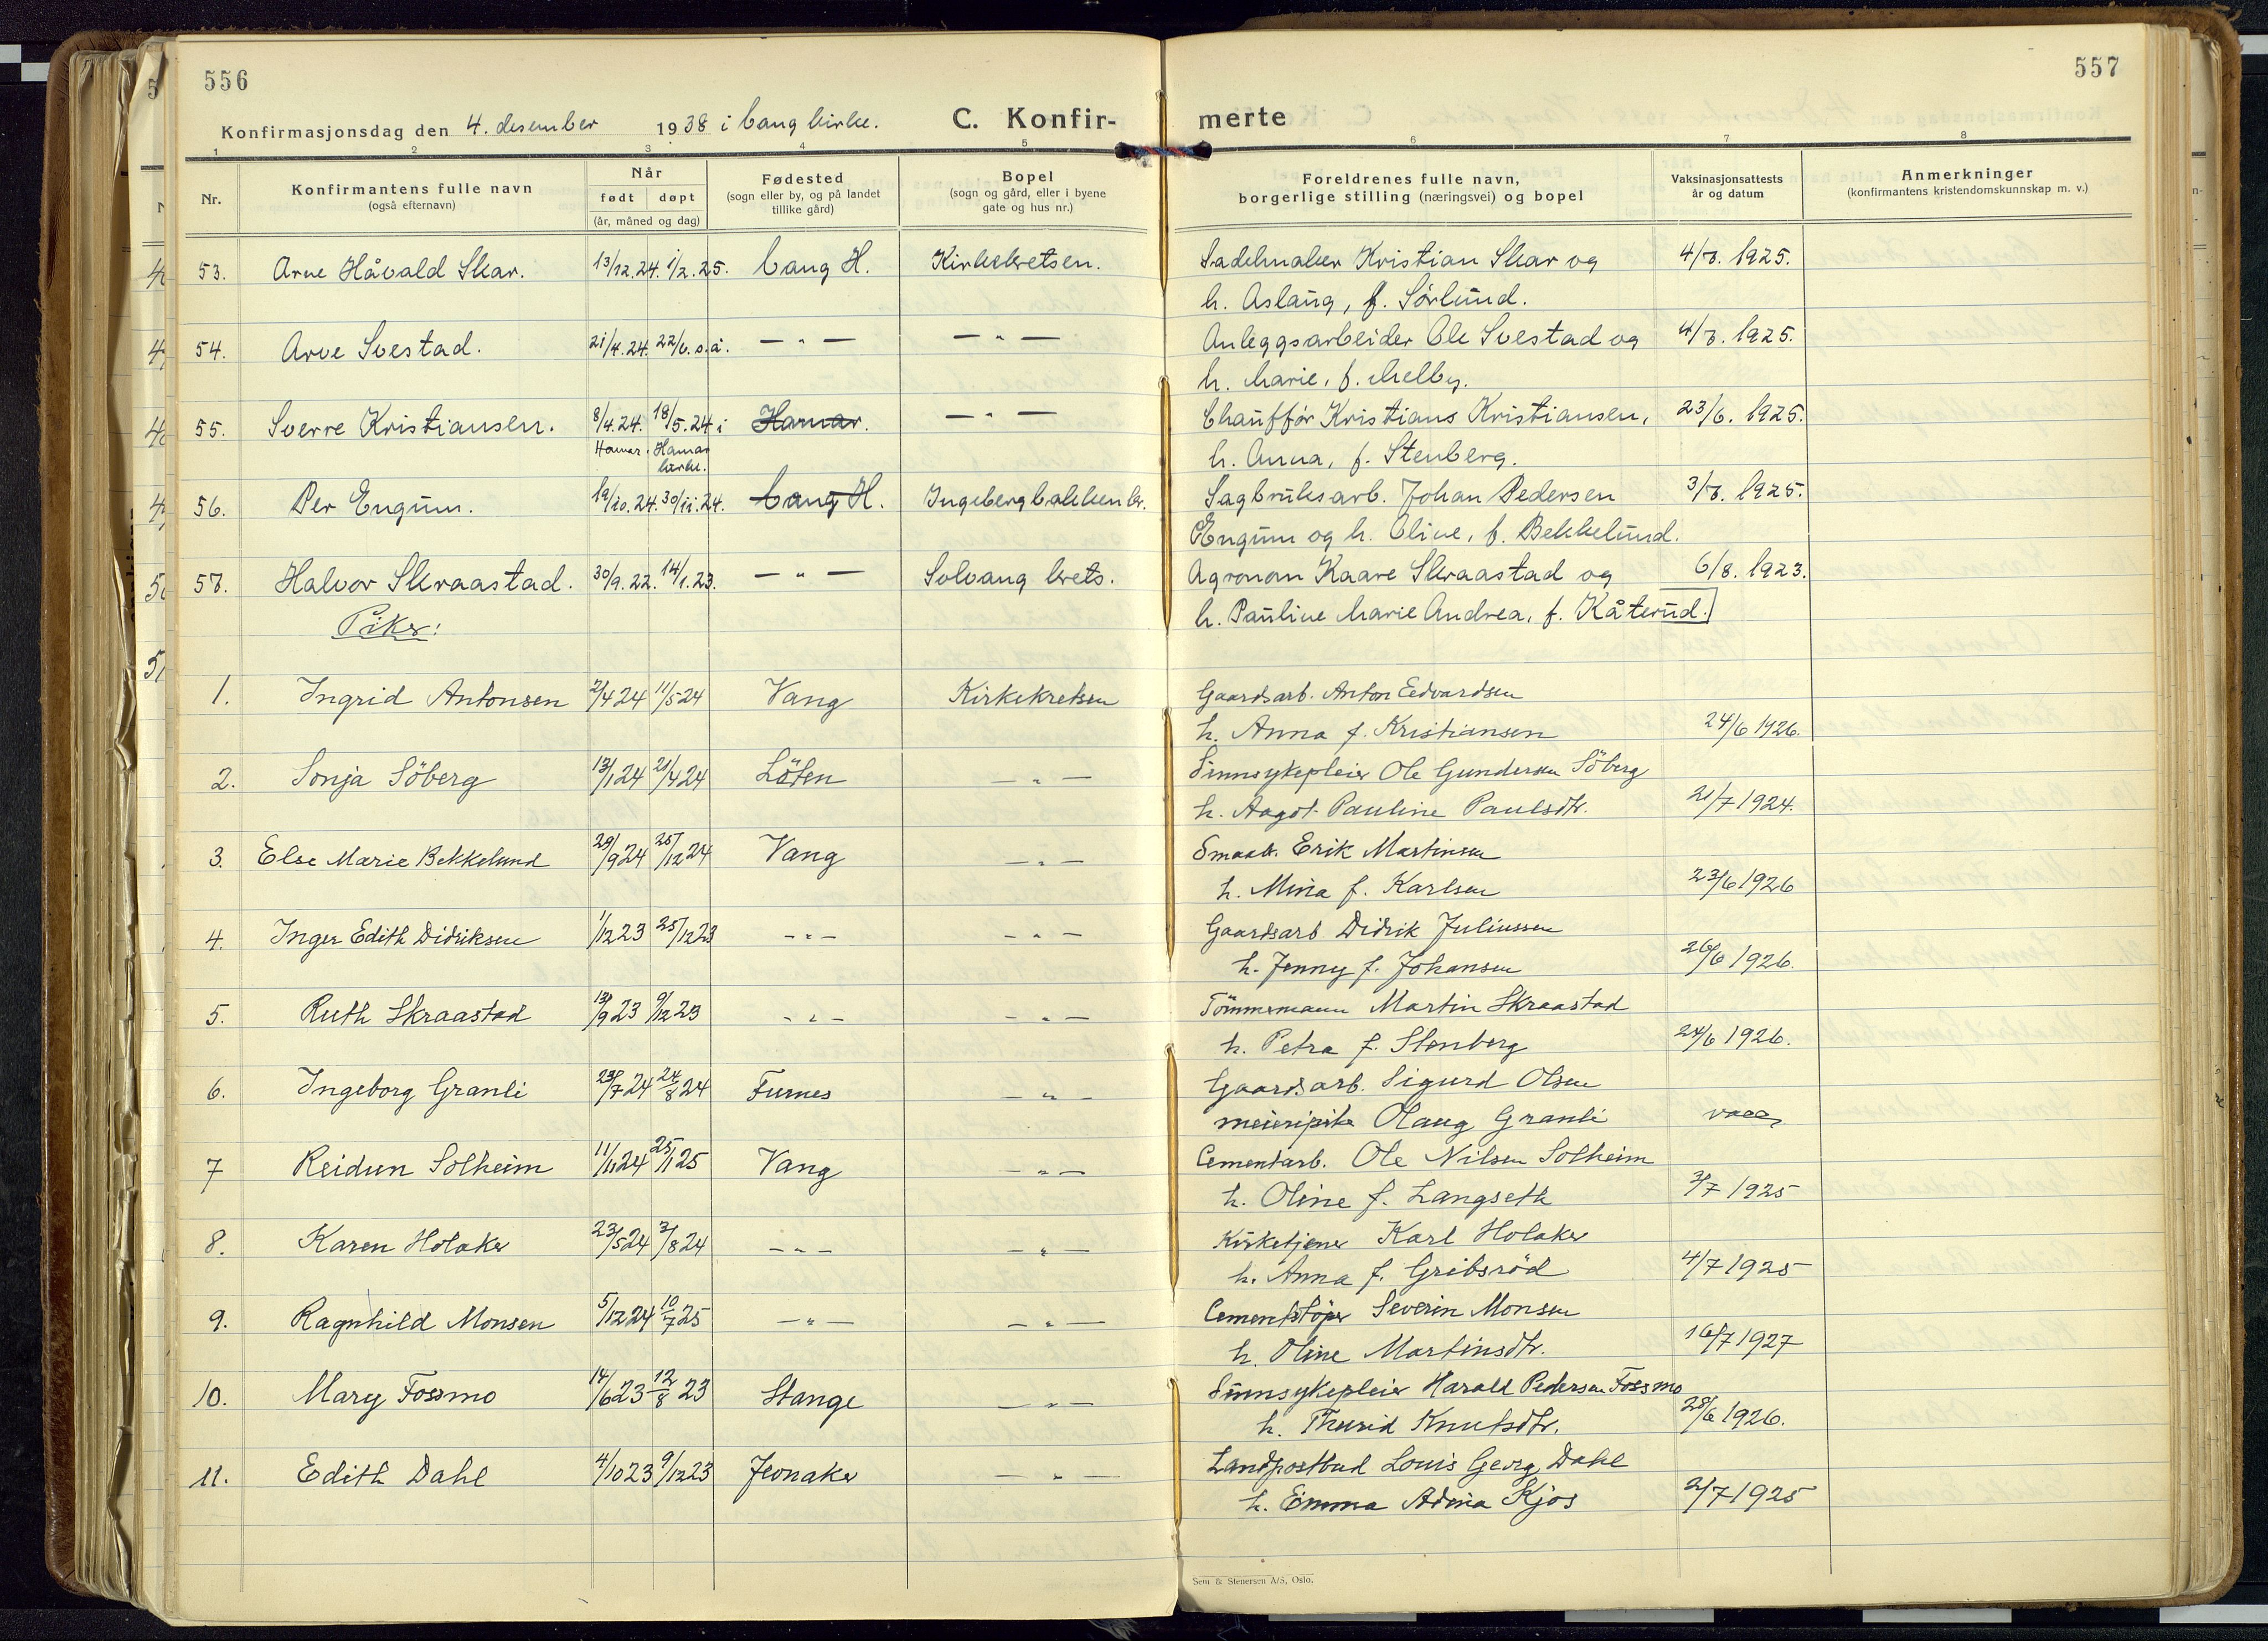 556
557
Konfirmasjonsdag den 4. desember 1938 i Vang kirke.
C. Konfir-
merte
1 2 3 4 5 6 7 8
Nr.
Konfirmantens fulle navn
(også efternavn)
Når
født døpt
(år, måned og dag)
Fødested
(sogn eller by, og på landet
tillike gård)
Bopel
(sogn og gård, eller i byene
gate og hus nr.)
Foreldrenes fulle navn,
borgerlige stilling (næringsvei) og bopel
Vaksinasjonsattests
år og datum
Anmerkninger
(konfirmantens kristendomskunnskap m. v.)
53. Arne Håvald Skar. 13/12.24. 1/2.25. Vang H. Kirkekretsen. Sadelmaker Kristian Skar og 4/7. 1925.
h. Aslaug, f. Sørlund.
54. Arve Svestad. 21/4.24. 22/6. s.å. — " — — " — Anleggsarbeider Ole Svestad og 4/7. 1925.
h. Marie, f. Melby.
55. Sverre Kristiansen. 8/4.24. 18/5.24 i Hamar. — " — Chauffør Kristians Kristiansen, 23/6. 1925.
Hamar. Hamar
kirke.
h. Anna, f. Stenberg.
56. Per Engum. 19/10.24. 30/11.24. Vang H. Ingeberg bakken kr. Sagbruksarb. Johan Pedersen 3/7. 1925.
Engum og h. Olive, f. Bekkelund.
57. Halvor Skraastad. 30/9.22. 14/1.23. — " — Solvang krets. Agronom Kaare Skraastad og 6/8. 1923.
h. Pauline Marie Andrea, f. Kåterud.
Piker:
1. Ingrid Antonsen 2/4 24 11/5 24 Vang Kirkekretsen Gaardsarb. Anton Edvardsen
h. Anna f. Kristiansen 24/6 1926.
2. Sonja Söberg 13/1 24 21/4 24 Löten — " — Sinnsykepleier Ole Gundersen Söberg
h. Aagot Pauline Paulsdtr. 21/7 1924.
3. Else Marie Bekkelund 29/9 24 25/12 24 Vang — " — Smaabr. Erik Martinsen
h. Mina f. Karlsen 23/6 1926
4. Inger Edith Didriksen 1/12 23 25/12 23 — " — — " — Gaardsarb Didrik Juliussen
h. Jenny f. Johansen 26/6 1926.
5. Ruth Skraastad 13/9 23 9/12 23 — " — — " — Tömmermann Martin Skraastad
h. Petra f. Stenberg 24/6 1926.
6. Ingeborg Granli 23/7 24 24/8 24 Furnes — " — Gaardsarb. Sigurd Olsen
meieripike Olaug Granli
7 Reidun Solheim 11/11 24 25/1 25 Vang — " — Cementarb. Ole Nilsen Solheim
h. Oline f. Langseth 3/7 1925
8. Karen Holaker 23/5 24 3/8 24 — " — — " — Kirketjener Karl Holaker
h. Anna f. Gribsröd 4/7 1925
9. Ragnhild Monsen 5/12 24 10/7 25 — " — — " — Cementstöper Severin Monsen
h. Oline Martinsdtr. 16/7 1927
10. Mary Fossmo 14/6 23 12/8 23 Stange — " — Sinnsykepleier Harald Pedersen Fossmo
h. Thurid Knutsdtr. 28/6 1926.
11. Edith Dahl 4/10 23 9/12 23 Jevnaker — " — Landpostbud Louis Georg Dahl
h. Emma Adina Kjos 2/7 1925
Sem & Stenersen A/S, Oslo.